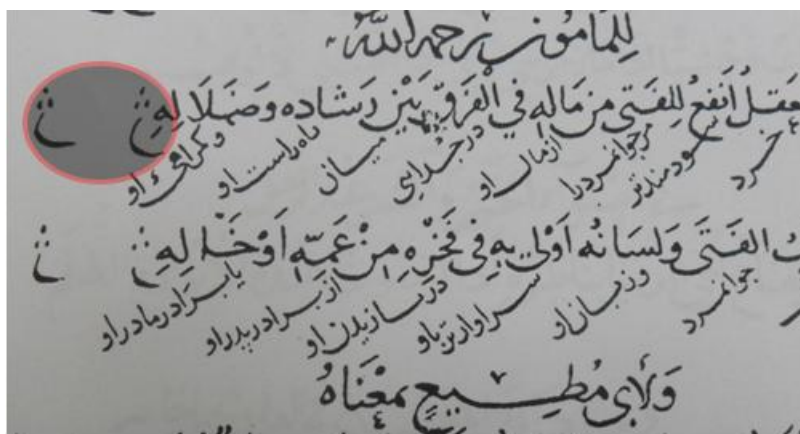 لِلْمَأْمُونِ رَحِمَهُ اللَّهُ
عَقْلُ أَنْفَعُ لِلْفَتَى مِنْ مَالِهِ فِي الْفَرْقِ بَيْنَ رَشَادِهِ وَضَلَالِهِ
خرد سودمندتر مرجوانمرد را از مال او در جدایی میان راه راست او و گمراهی او
الفَتَى وَلِسَانُهُ أَوْلَى بِهِ فِي فَخْرِهِ مِنْ عَمِّهِ أَوْ خَالِهِ
جوانمرد و زبان او سزاوارتر باو در نازیدن او از برادر پدر او یا برادر مادر او
وَلِأَبِي مُطِيعٍ بِمَعْنَاهُ